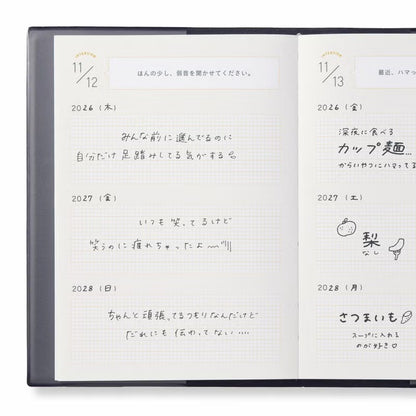 INTERVIEW
11/12
ほんの少し、弱音を聞かせてください。
2026 (木)
みんな前に進んでるのに
自分だけ足踏みしてる気がする。
2027 (金)
いつも笑ってるけど
笑うのに疲れちゃったよ
2028 (日)
ちゃんと頑張ってるつもりなんだけど
だれにも伝わってない....
INTERVIEW
11/13
最近、ハマっ
2026 (金)
深夜に食べる
カップ麺...
からいやつにハマってる
2027 (土)
梨
なし
2028 (月)
さつまいも
スープに入れる
のが好き♡